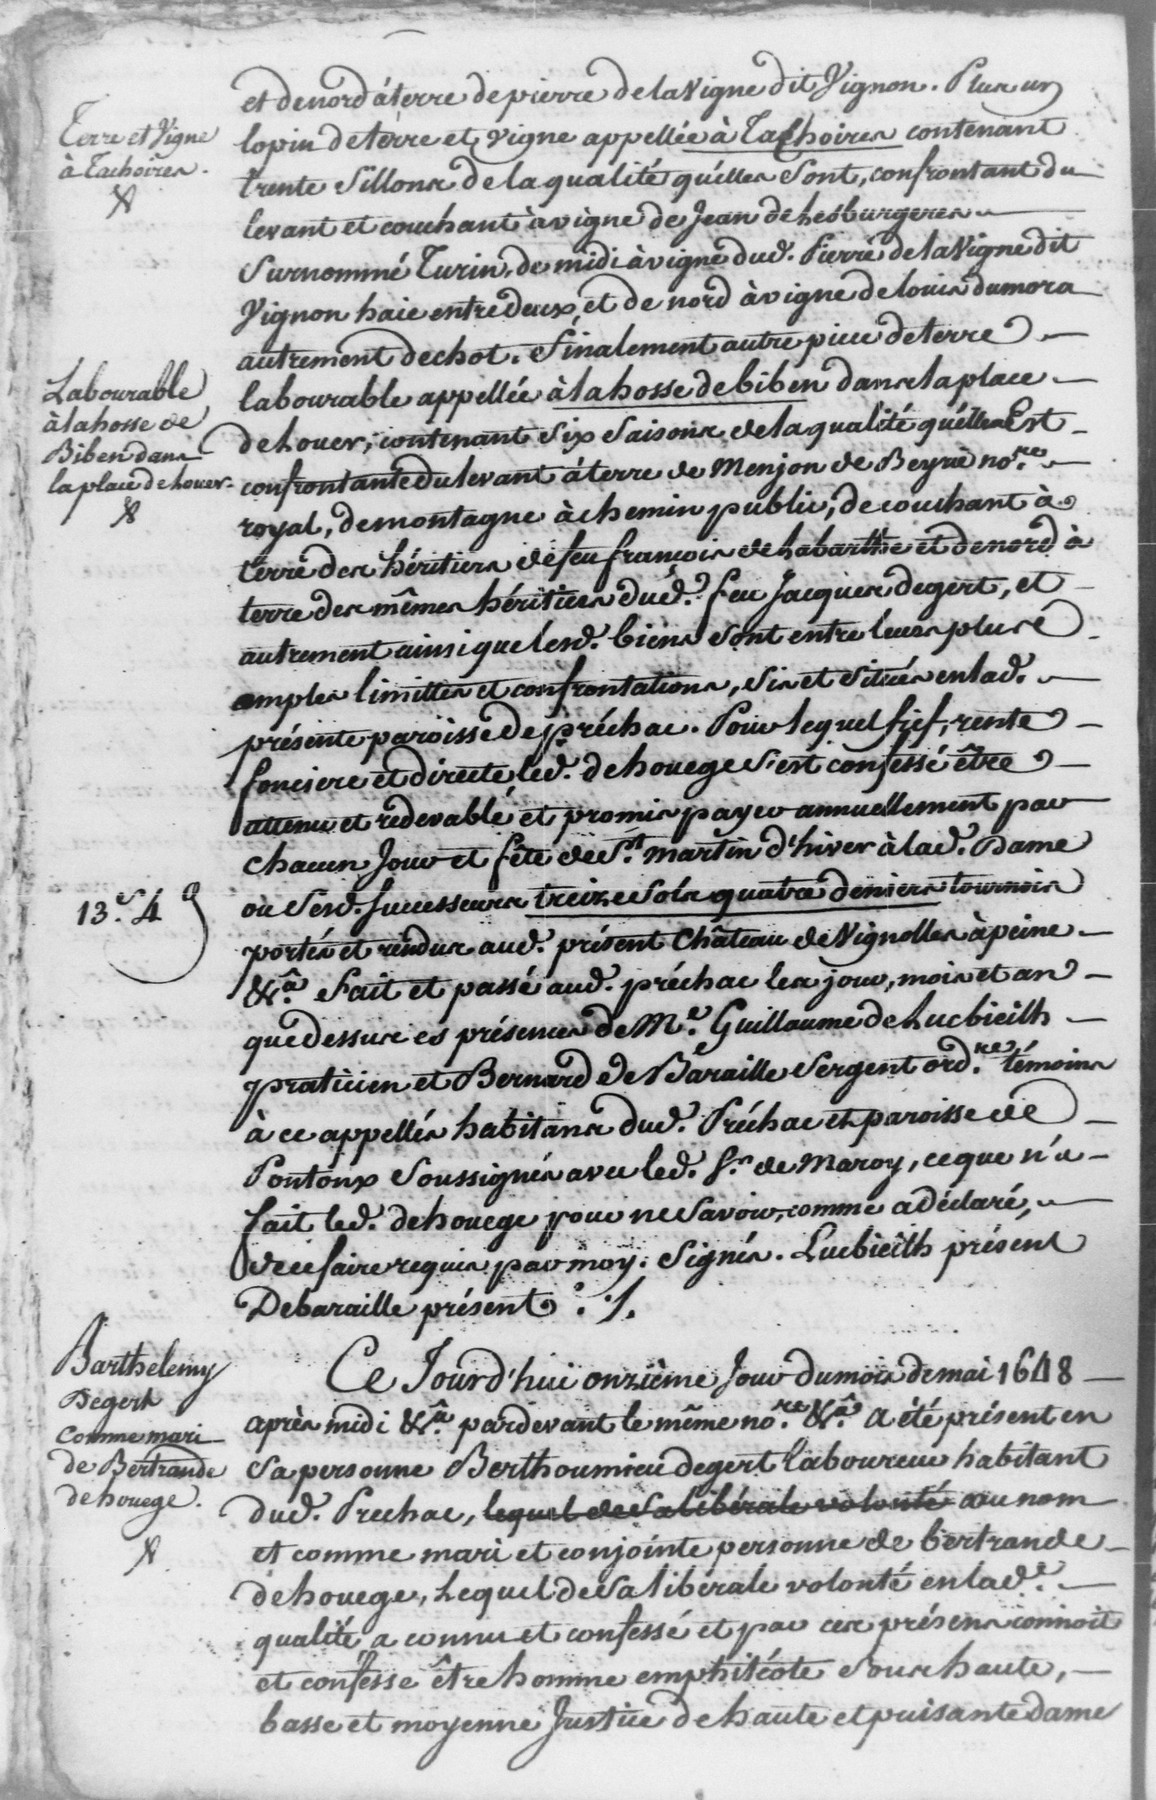 et de nord à terre de pierre de laVigne dit Vignon. Plus un
lopin de terre et vigne appellée à Tachoires contenant
trente Sillons de la qualité quélles Sont, confrontant du
levant et couchant à vigne de Jean de Lesburgeres
Surnommé Turin, de midi à vigne dud. Pierre de laVigne dit
Vignon haie entre deux, et de nord à vigne de louis dumora
autrement dechot. Finalement autre piece de terre
labourable appellée à la hosse de biben dans la place
de houer, contenant Six Saisons de la qualité quélles Est
confrontante du levant à terre de Menjon de Beyrie no.re
royal, de montagne à chemin public, de couchant à
terre des héritiers de feu françois de Labarthe et de nord à
terre des mêmes héritiers dud. feu Jacques degert, et
autrement ainsi que lesd. biens Sont entre leurs plus
amples limittes et confrontations, Sis et Situés en lad.
présente paroisse de préchac. Pour lequel fief, rente
fonciere et directe led. dehouege s'est confessé être
attenu et redevable et promis payer annuellement par
chacun Jour et fête de St. martin d'hiver à lad. Dame
ou Sesd. Successeurs treize sols quatre deniers tournois
portés et rendus aud. présent Château de Vignolles à peine
&.a Fait et passé aud. préchac les jour, mois et an
que dessus es présences de M.e Guillaume de Lucbieilh
praticien et Bernard de Baraille Sergent ord.re témoins
à ce appellés habitans dud. Préchac et paroisse de
Pontonx Soussignés avec led. S.r de Maroy, ce que n'a
fait led. dehouege pour ne Savoir, comme a déclaré,
de ce faire requis par moy. Signés. Lucbieilh présent
Debaraille présent ./.
Ce Jourd'hui onzième Jour du mois de mai 1648
après midi &.a pardevant le même no.re &.a a été présent en
Sa personne Berthoumieu degert laboureur habitant
dud. Prechac, lequel de Sa libérale volonté au nom
et comme mari et conjointe personne de bertrande
dehouege, Lequel de Sa libérale volonté en lad.e
qualité a connu et confessé et par ces présens connoit
et confesse être homme emphitéote Sous haute,
basse et moyenne Justice de haute et puisante dame
Terre et Vigne
à Tachoires.
Labourable
à la hosse de
Biben dans
la place de houer
13.s 4.d
Barthelemy
Degert
comme mari
de Bertrande
dehouege.